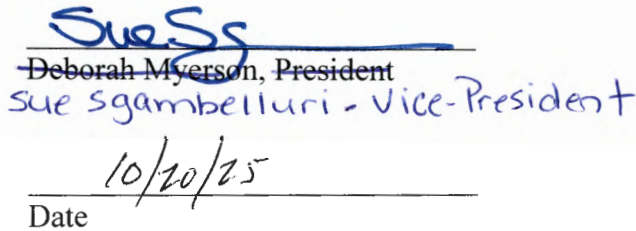 Sue Sg
Deborah Myerson, President
Sue Sgambelluri - Vice-President
10/20/25
Date